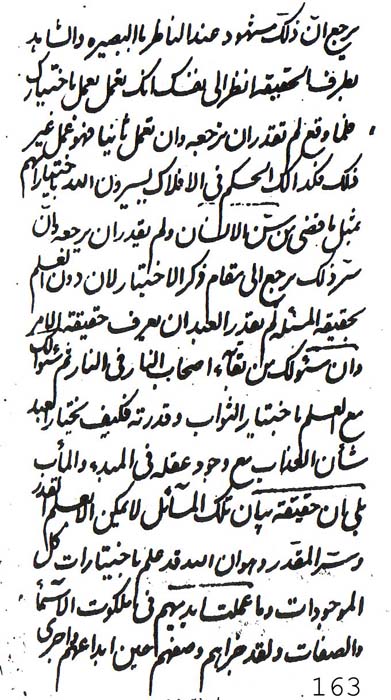 يرجع ان ذلك مشهود عند الناظر بالبصيره والشاهد
بطرف الحقيقة انظر الى نفسك انك تعمل بعمل باختيارك
فلما وقع لم تقدر ان ترجعه وان تعمل ثانيا فهو عمل غير
ذلك فكذالك الحكم في الافلاك يسيرون الله باختيارهم
بمثل ما قضى من سن الانسان ولم يقدر ان يرجعه وان
سر ذلك يرجع الى مقام ذكر الاختيار لان دون العلم
بحقيقة المسئله لم يقدر العبد ان يعرف حقيقة الامر
وان سئوالك من بقآء اصحاب النار في النار ثم سئوالك
مع العلم باختيار الثواب وقدرته فكيف يختار العبد
شأن العذاب مع وجود عقله في المبدء والمأب
بلى ان حقيقة بيان تلك المسآئل لا يمكن الا بعلم القدر
وسر المقدر وهو ان الله قد علم باختيارات كل
الموجودات وما عملت ايديهم في ملكوت الاسمآء
والصفات ولقد جزاهم وصفهم حين ابداعهم اجرى
163